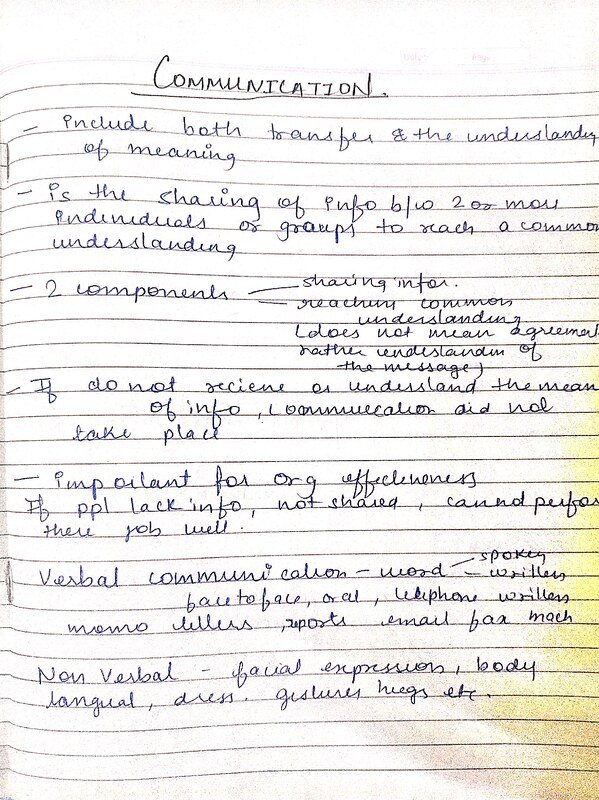 COMMUNICATION.
- include both transfer & the understanding
of meaning
- is the sharing of info b/w 2 or more
individuals or groups to reach a common
understanding
- 2 components — sharing infor.
— reaching common
understanding
(does not mean agreemen
rather understandin of
the message)
- If do not recieve or understand the mean
of info, communication did not
take place
- important for org effectiveness
If ppl lack info, not shared, cannot perfor
there job well.
Verbal communication - word - spoken
- written
face to face, oral, telephone written
memo letters, reports email fax mach
Non Verbal - facial expression, body
langual, dress. gestures hugs etc.